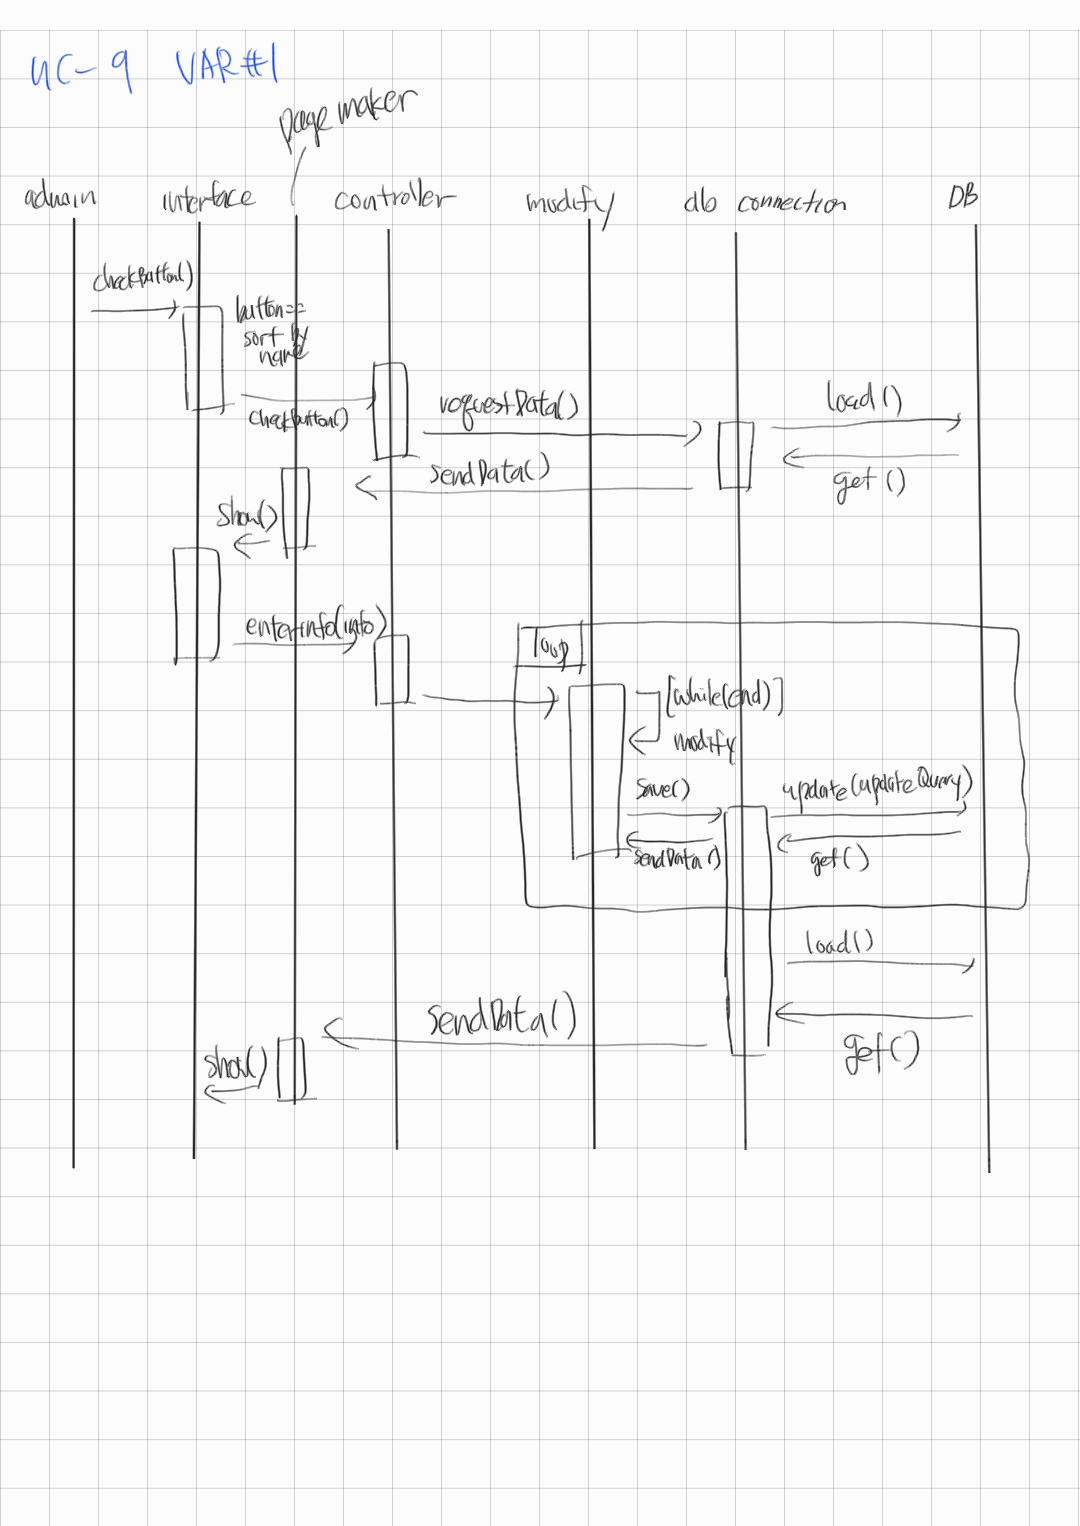 UC-9 VAR#1
page maker
admin interface controller modify db connection DB
checkButton()
button==
sort by
name
checkbutton()
requestData()
load()
sendData()
get()
show()
enterinfo(info)
loop
[while(end)]
modify
save()
update(updateQuery)
sendData()
get()
load()
sendData()
get()
show()